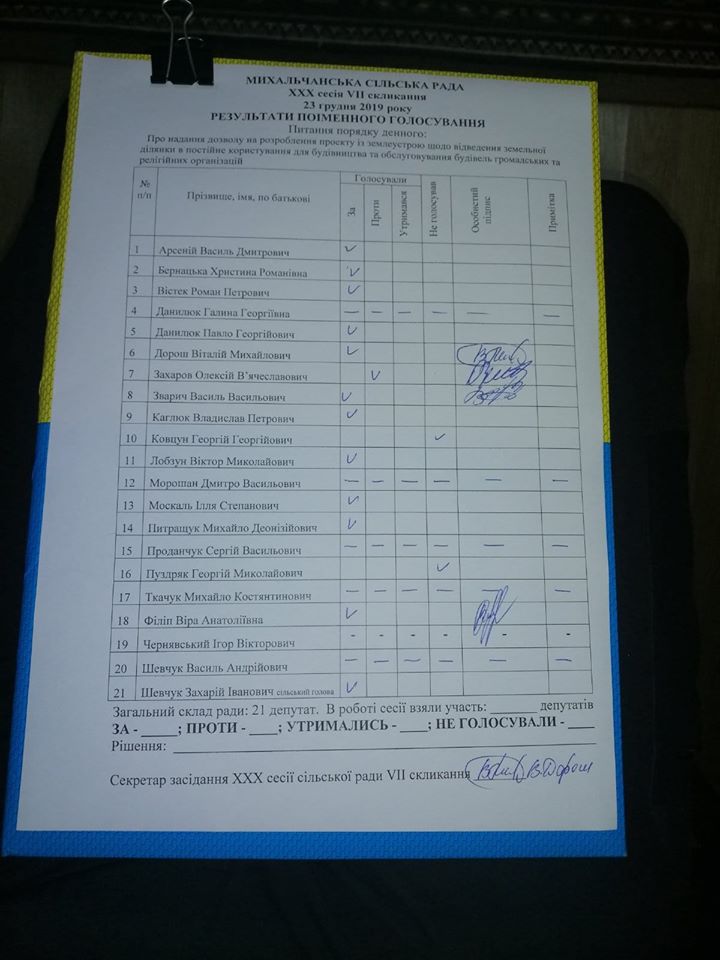 МИХАЛЬЧАНСЬКА СІЛЬСЬКА РАДА
XXX сесія VII скликання
23 грудня 2019 року
РЕЗУЛЬТАТИ ПОІМЕННОГО ГОЛОСУВАННЯ
Питання порядку денного:
Про надання дозволу на розроблення проєкту із землеустрою щодо відведення земельної
ділянки в постійне користування для будівництва та обслуговування будівель громадських та
релігійних організацій
№ п/п Прізвище, імя, по батькові Голосували За Проти Утримався Не голосував Особистий підпис Примітка
1 Арсеній Василь Дмитрович ✓
2 Бернацька Христина Романівна ✓
3 Вістек Роман Петрович ✓
4 Данилюк Галина Георгіївна — — — — — —
5 Данилюк Павло Георгійович ✓
6 Дорош Віталій Михайлович ✓
7 Захаров Олексій В’ячеславович ✓
8 Зварич Василь Васильович ✓
9 Каглюк Владислав Петрович ✓
10 Ковцун Георгій Георгійович ✓
11 Лобзун Віктор Миколайович ✓
12 Морошан Дмитро Васильович — — — — — —
13 Москаль Ілля Степанович ✓
14 Питращук Михайло Деонізійович ✓
15 Проданчук Сергій Васильович — — — — — —
16 Пуздряк Георгій Миколайович ✓
17 Ткачук Михайло Костянтинович — — — — — —
18 Філіп Віра Анатоліївна ✓
19 Чернявський Ігор Вікторович - - - - - -
20 Шевчук Василь Андрійович — — — — — —
21 Шевчук Захарій Іванович сільський голова ✓
Загальний склад ради: 21 депутат. В роботі сесії взяли участь: _______ депутатів
ЗА - _____; ПРОТИ - ____; УТРИМАЛИСЬ - ____; НЕ ГОЛОСУВАЛИ - ____
Рішення: ____________________
Секретар засідання XXX сесії сільської ради VII скликання В.Дорош